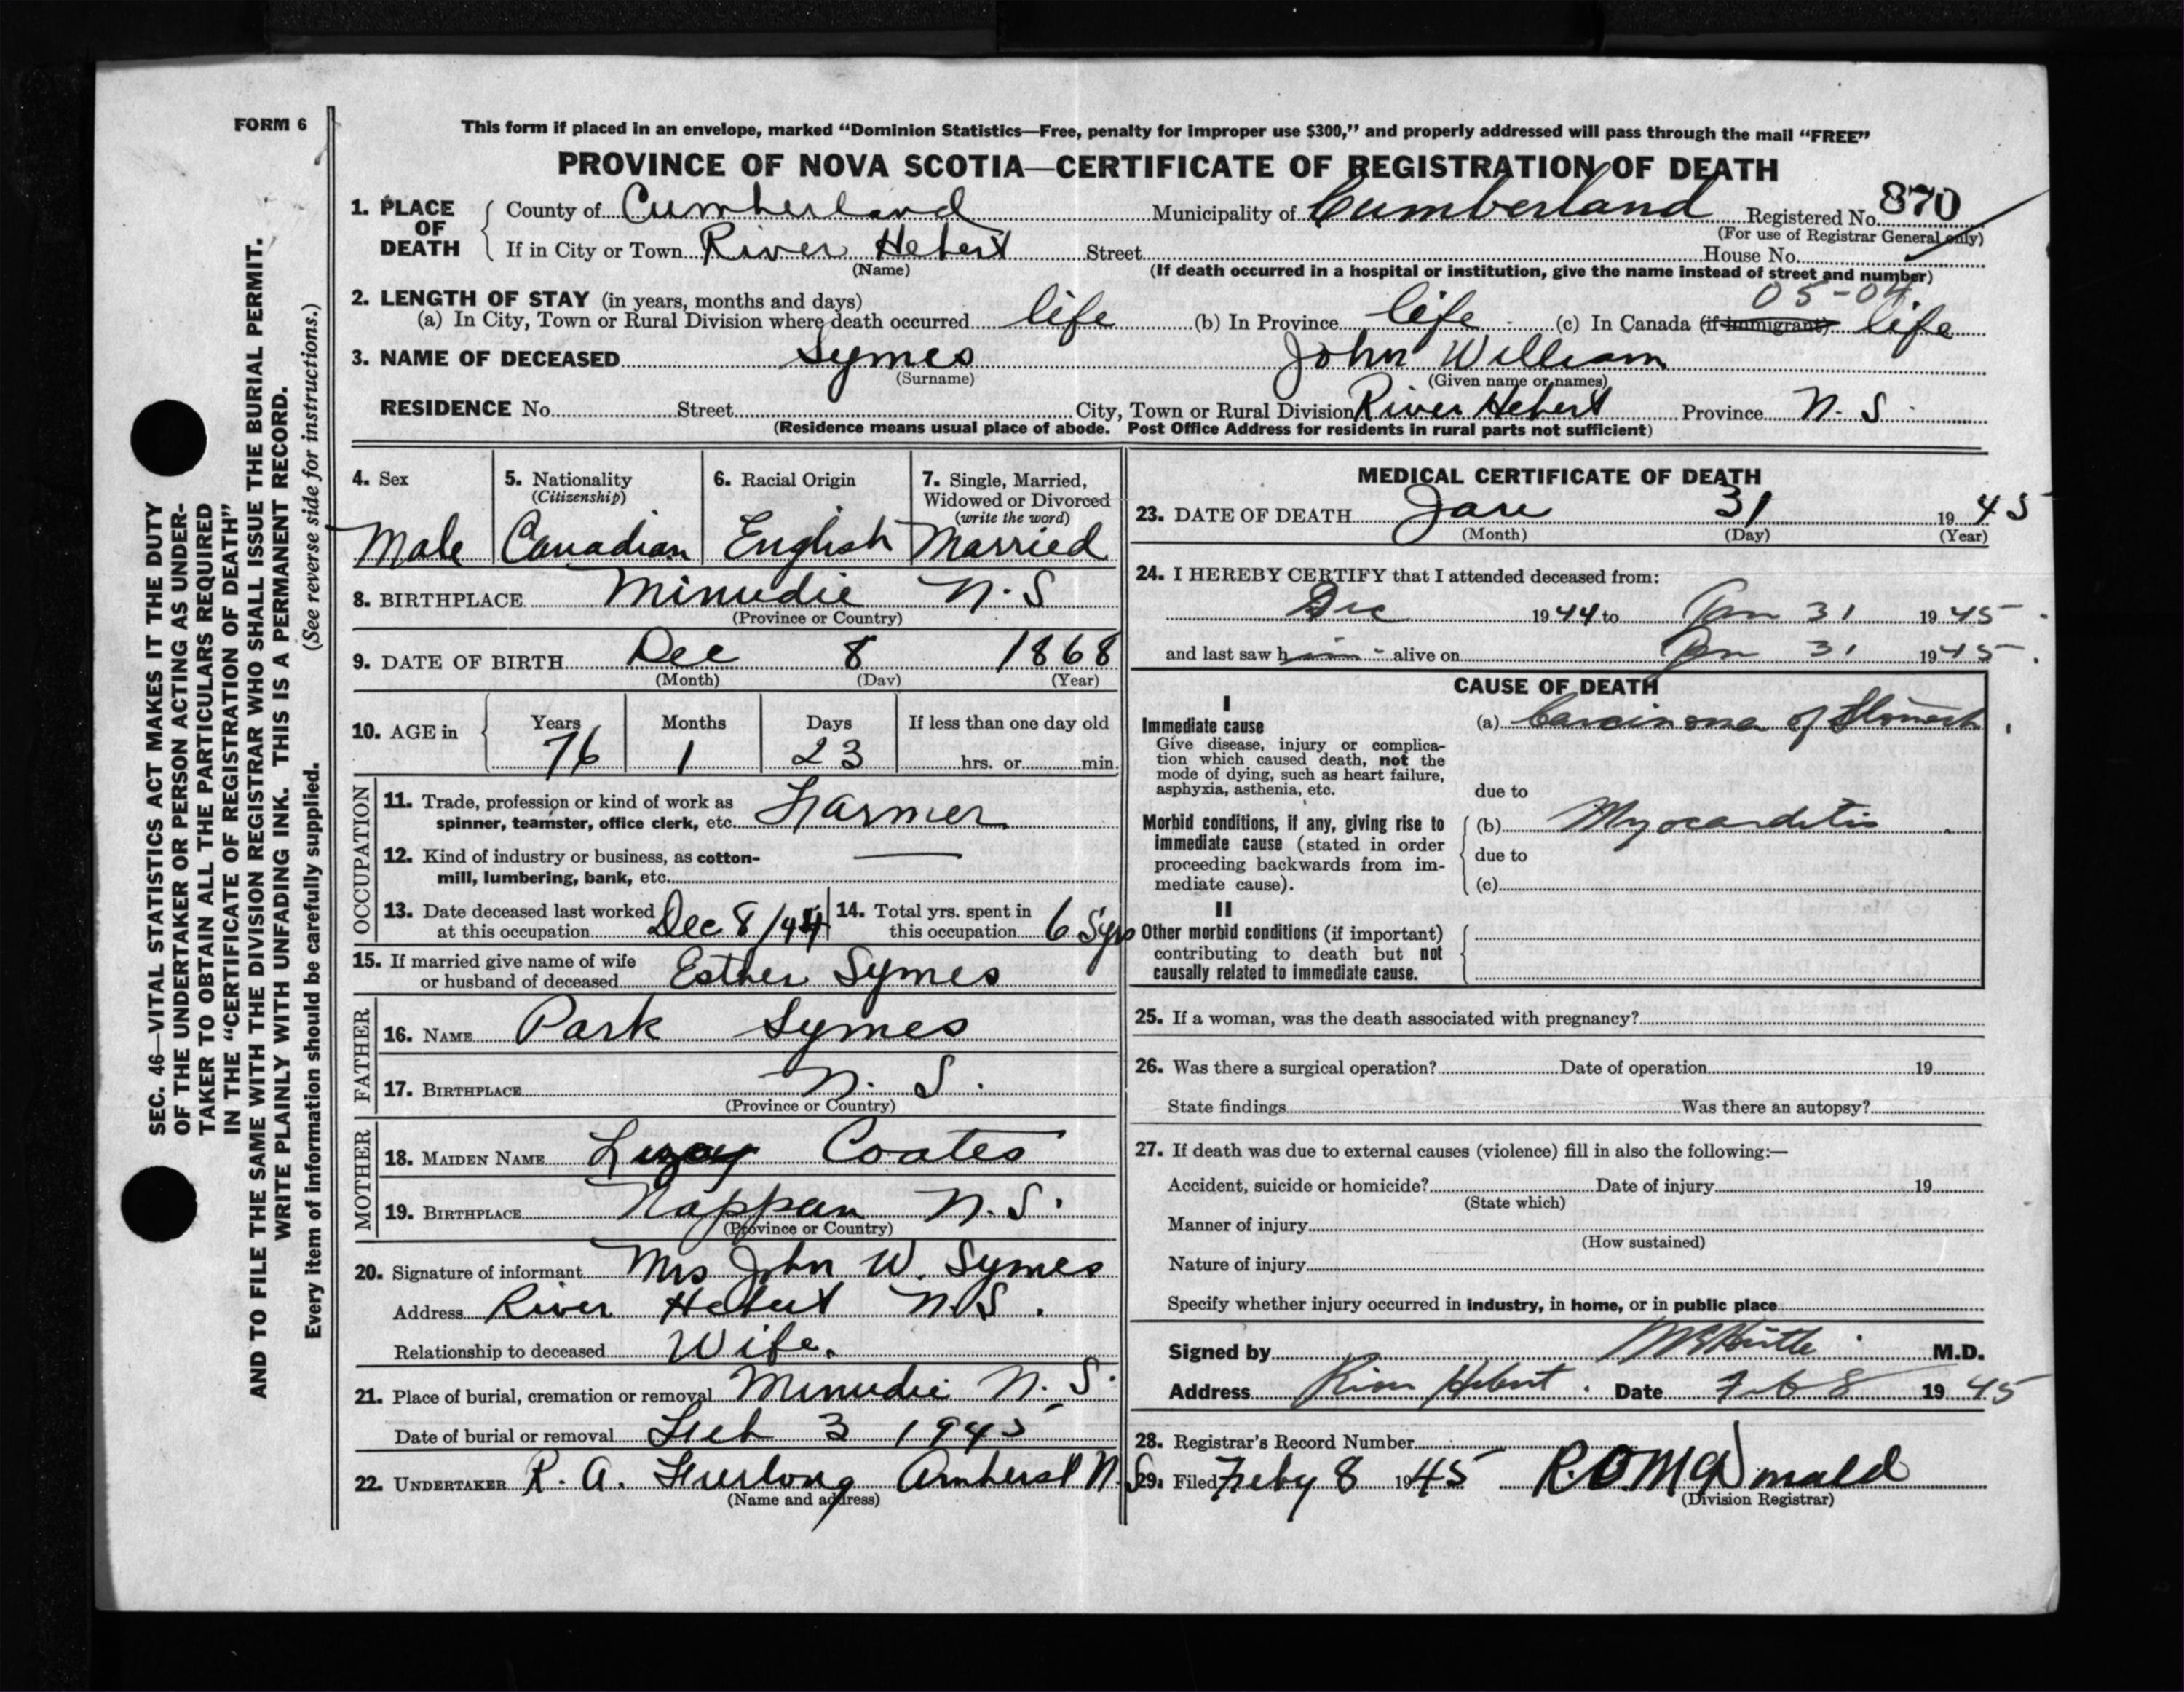 FORM 6
This form if placed in an envelope, marked “Dominion Statistics—Free, penalty for improper use $300,” and properly addressed will pass through the mail “FREE”
PROVINCE OF NOVA SCOTIA—CERTIFICATE OF REGISTRATION OF DEATH
SEC. 46—VITAL STATISTICS ACT MAKES IT THE DUTY
OF THE UNDERTAKER OR PERSON ACTING AS UNDER-
TAKER TO OBTAIN ALL THE PARTICULARS REQUIRED
IN THE “CERTIFICATE OF REGISTRATION OF DEATH”
AND TO FILE THE SAME WITH THE DIVISION REGISTRAR WHO SHALL ISSUE THE BURIAL PERMIT.
WRITE PLAINLY WITH UNFADING INK. THIS IS A PERMANENT RECORD.
Every item of information should be carefully supplied. (See reverse side for instructions.)
1. PLACE OF DEATH County of Cumberland Municipality of Cumberland Registered No. 870
(For use of Registrar General only)
If in City or Town River Hebert Street House No.
(Name) (If death occurred in a hospital or institution, give the name instead of street and number)
2. LENGTH OF STAY (in years, months and days) 05-04
(a) In City, Town or Rural Division where death occurred life (b) In Province life (c) In Canada (if immigrant) life
3. NAME OF DECEASED Symes John William
(Surname) (Given name or names)
RESIDENCE No. Street City, Town or Rural Division River Hebert Province N. S.
(Residence means usual place of abode. Post Office Address for residents in rural parts not sufficient)
4. Sex 5. Nationality 6. Racial Origin 7. Single, Married,
(Citizenship) Widowed or Divorced
(write the word)
Male Canadian English Married
8. BIRTHPLACE Minudie N.S
(Province or Country)
9. DATE OF BIRTH Dec 8 1868
(Month) (Day) (Year)
10. AGE in Years Months Days If less than one day old
76 1 23 hrs. or min.
OCCUPATION
11. Trade, profession or kind of work as
spinner, teamster, office clerk, etc. Farmer
12. Kind of industry or business, as cotton-
mill, lumbering, bank, etc. —
13. Date deceased last worked
at this occupation Dec 8/44
14. Total yrs. spent in
this occupation 65yrs
15. If married give name of wife
or husband of deceased Esther Symes
FATHER
16. NAME Park Symes
17. BIRTHPLACE N. S.
(Province or Country)
MOTHER
18. MAIDEN NAME Coates
19. BIRTHPLACE Nappan N.S.
(Province or Country)
20. Signature of informant Mrs John W. Symes
Address River Hebert N.S.
Relationship to deceased Wife.
21. Place of burial, cremation or removal Minudie N. S.
Date of burial or removal Feb 3 1945
22. UNDERTAKER R. A. Furlong Amherst N.S
(Name and address)
MEDICAL CERTIFICATE OF DEATH
23. DATE OF DEATH Jan 31 1945
(Month) (Day) (Year)
24. I HEREBY CERTIFY that I attended deceased from:
Dec 1944 to Jan 31 1945
and last saw him alive on Jan 31 1945
CAUSE OF DEATH
I
Immediate cause (a) Carcinoma of Stomach
Give disease, injury or complica-
tion which caused death, not the
mode of dying, such as heart failure,
asphyxia, asthenia, etc. due to
Morbid conditions, if any, giving rise to (b) Myocarditis
immediate cause (stated in order
proceeding backwards from im- due to
mediate cause). (c)
II
Other morbid conditions (if important)
contributing to death but not
causally related to immediate cause.
25. If a woman, was the death associated with pregnancy?
26. Was there a surgical operation? Date of operation 19
State findings Was there an autopsy?
27. If death was due to external causes (violence) fill in also the following:—
Accident, suicide or homicide? Date of injury 19
(State which)
Manner of injury
(How sustained)
Nature of injury
Specify whether injury occurred in industry, in home, or in public place
Signed by M.D.
Address River Hebert. Date Feb 8 1945
28. Registrar's Record Number
29. Filed Feby 8 1945 R.O. McDonald
(Division Registrar)